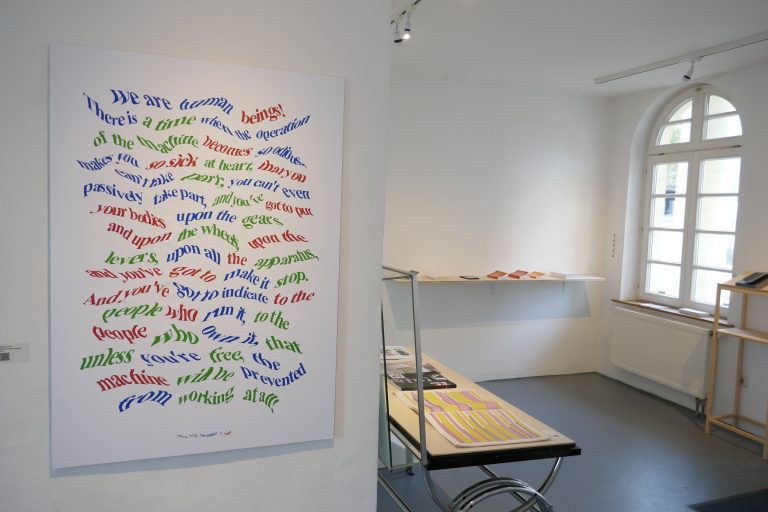 We are human beings!
There is a time when the operation
of the machine becomes so odious,
makes you so sick at heart, that you
can't take part, you can't even
passively take part, and you've got to put
your bodies upon the gears
and upon the wheels, upon the
levers, upon all the apparatus,
and you've got to make it stop.
And you've got to indicate to the
people who run it, to the
people who own it, that
unless you're free, the
machine will be prevented
from working at all.